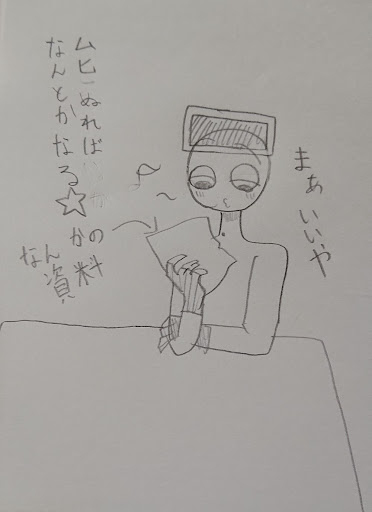 まぁいいや
ムヒぬれば
なんとかなる☆
なんかの
資料